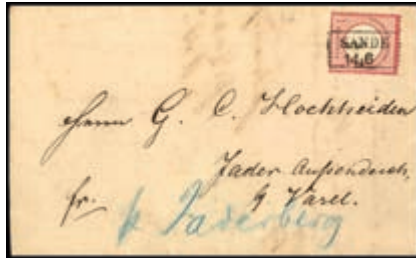 SANDE
14/6
Herrn G. C. Hochheiden
Jader Außendeich,
fr. b/ Varel.
Jaderberg